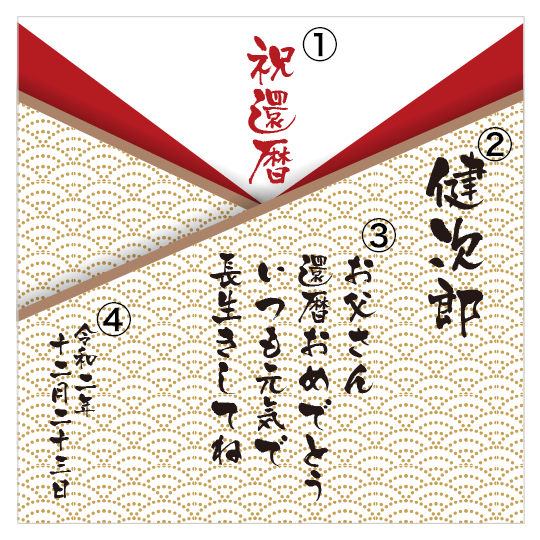 ①
祝還暦
②
健次郎
③
お父さん
還暦おめでとう
いつも元気で
長生きしてね
④
令和二年
十二月二十三日